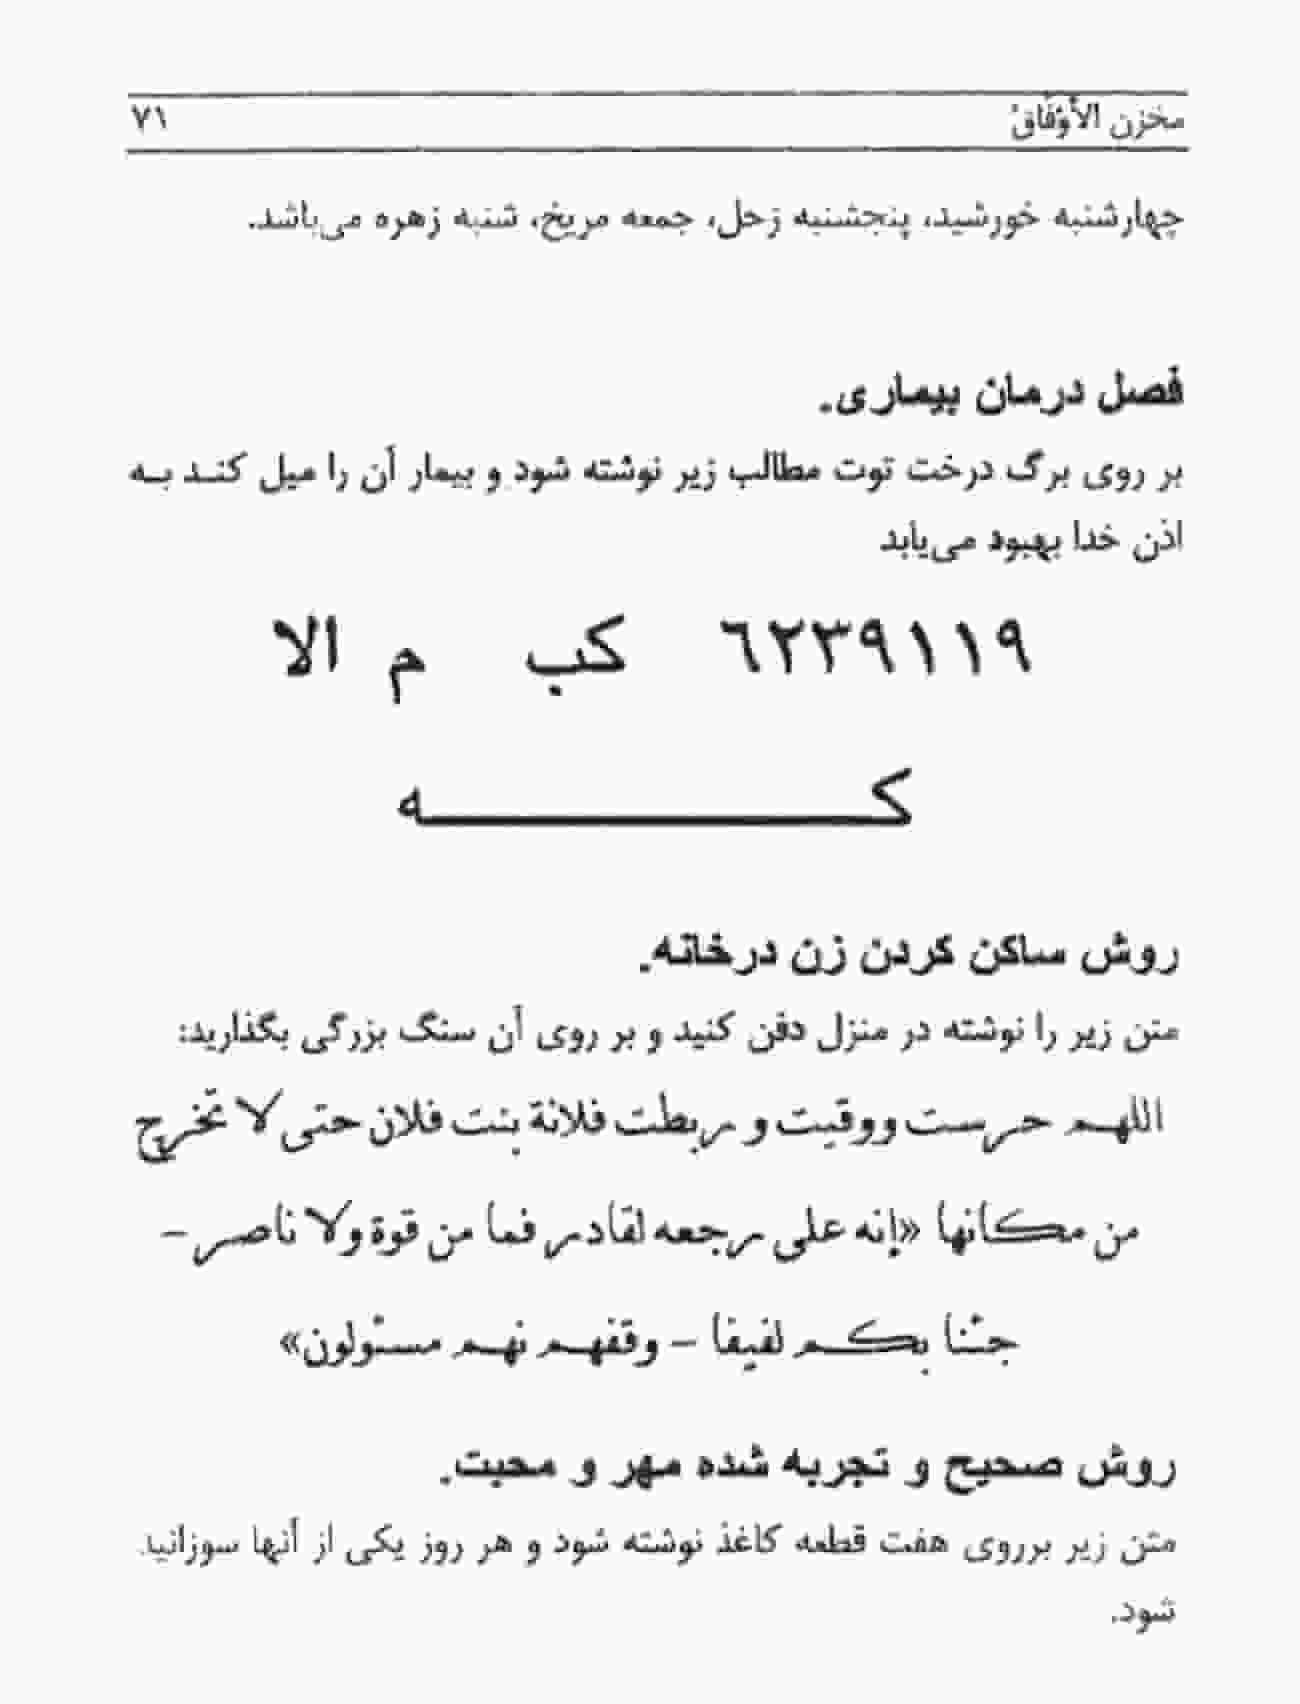 مخزن الأَوْفَاقْ ۷۱
چهارشنبه خورشید، پنجشنبه زحل، جمعه مریخ، شنبه زهره می‌باشد.
فصل درمان بیماری.
بر روی برگ درخت توت مطالب زیر نوشته شود و بیمار آن را میل کنـد بـه
اذن خدا بهبود می‌یابد
٦٢٣٩١١٩ كب م الا
كـــــــــــــه
روش ساکن کردن زن درخانه.
متن زیر را نوشته در منزل دفن کنید و بر روی آن سنگ بزرگی بگذارید:
اللهم حرست ووقيت و ربطت فلانة بنت فلان حتى لا تخرج
من مكانها «إنه على رجعه لقادر فما من قوة ولا ناصر –
جئنا بكم لفيفا – وقفهم نهم مسئولون»
روش صحیح و تجربه شده مهر و محبت.
متن زیر برروی هفت قطعه کاغذ نوشته شود و هر روز یکی از آنها سوزانید
شود.